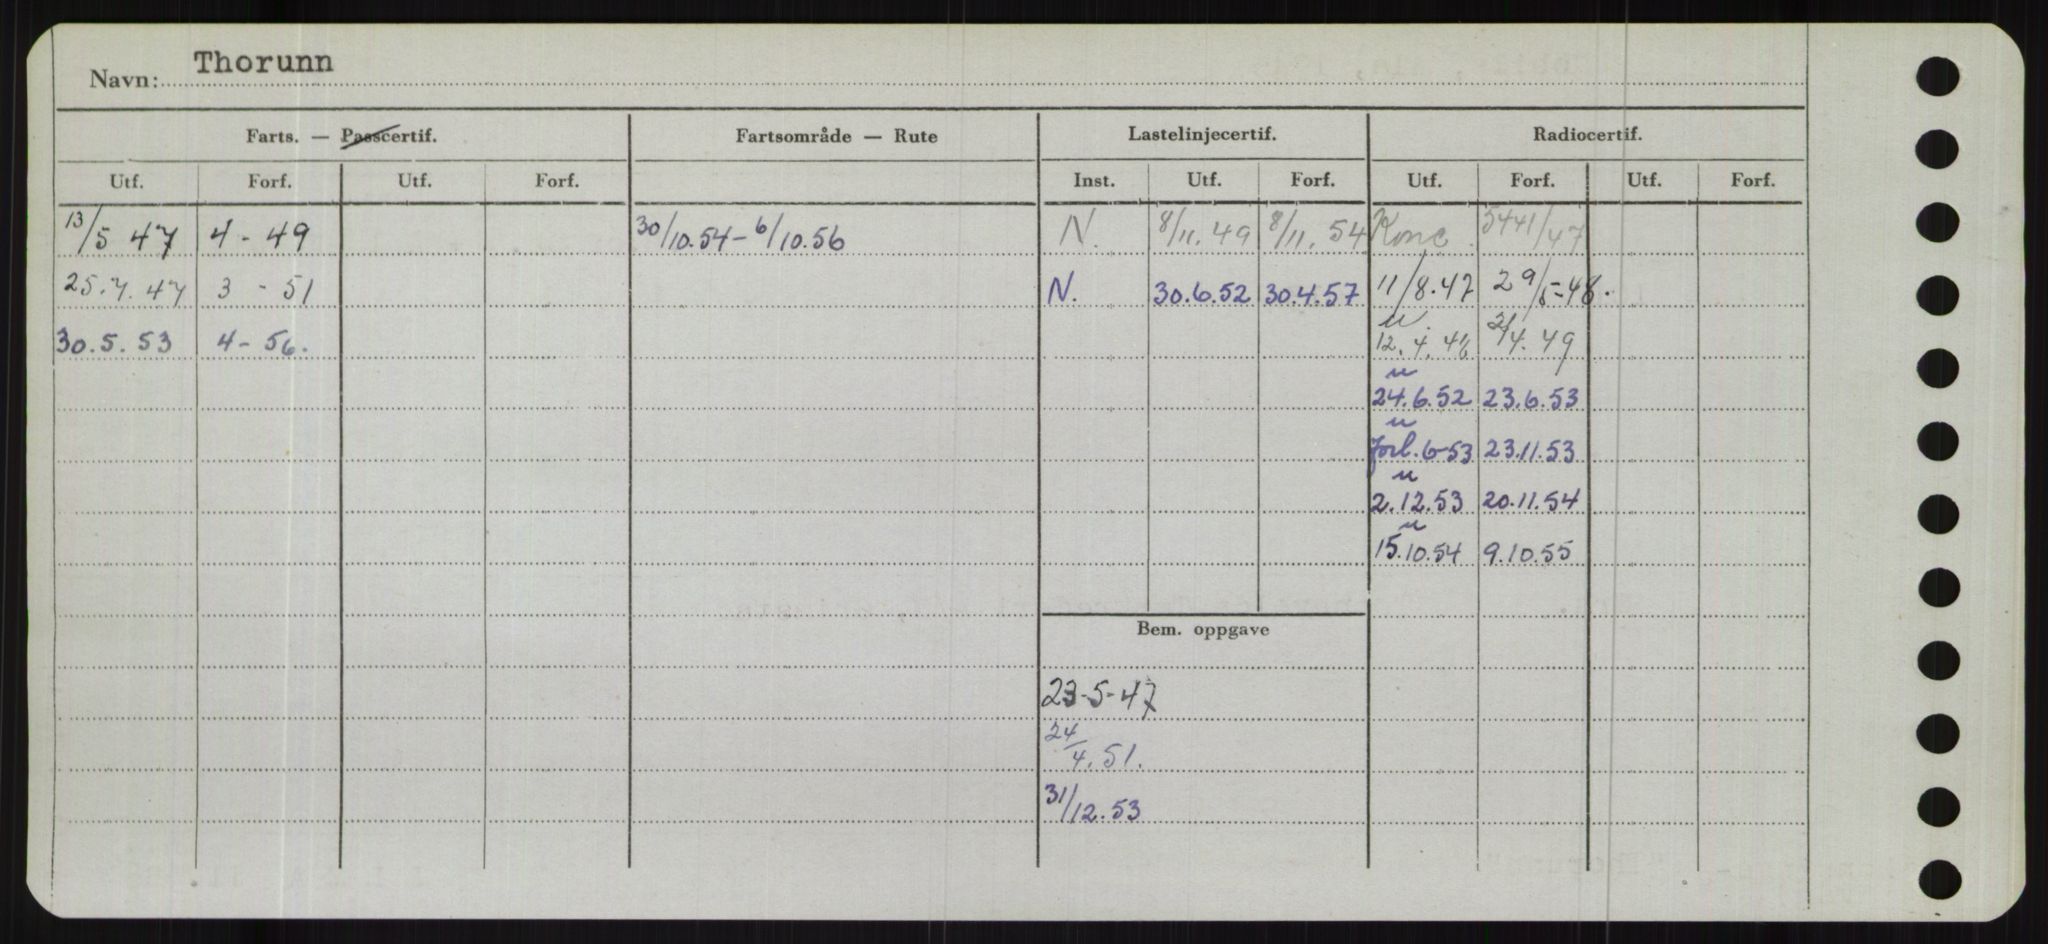 Navn: Thorunn
Farts. — Passcertif. Fartsområde — Rute Lastelinjecertif. Radiocertif.
Utf. Forf. Utf. Forf. Inst. Utf. Forf. Utf. Forf. Utf. Forf.
13/5 47 4 - 49 30/10.54 - 6/10.56 N. 8/11. 49 8/11. 54 Konc. 5441/47
25.7.47 3 - 51 N. 30.6.52 30.4.57 11/8.47 29/5-48.
u
30.5.53 4 - 56. 12.4.48 2/4.49
u
24.6.52 23.6.53
u
forl. 6-53 23.11.53
u
2.12.53 20.11.54
u
15.10.54 9.10.55
Bem. oppgave
23-5-47
24/4.51.
31/12.53